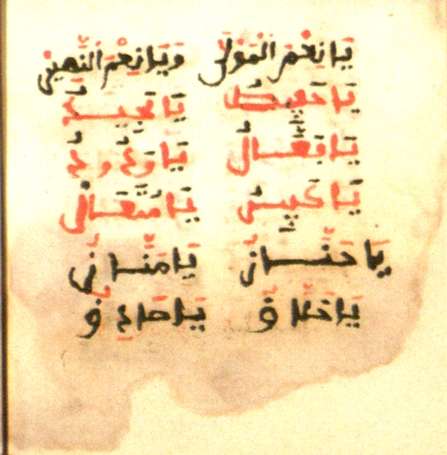 يَا نِعْمَ الْمَوْلَى وَيَا نِعْمَ النَّصِيرُ
يَا يَا
يَا فَعَّالُ يَا وَدُودُ
يَا يَا مُتَعَالِي
يَا حَنَّانُ يَا مَنَّانُ
يَا خَلَّاقُ يَا صَادِقُ